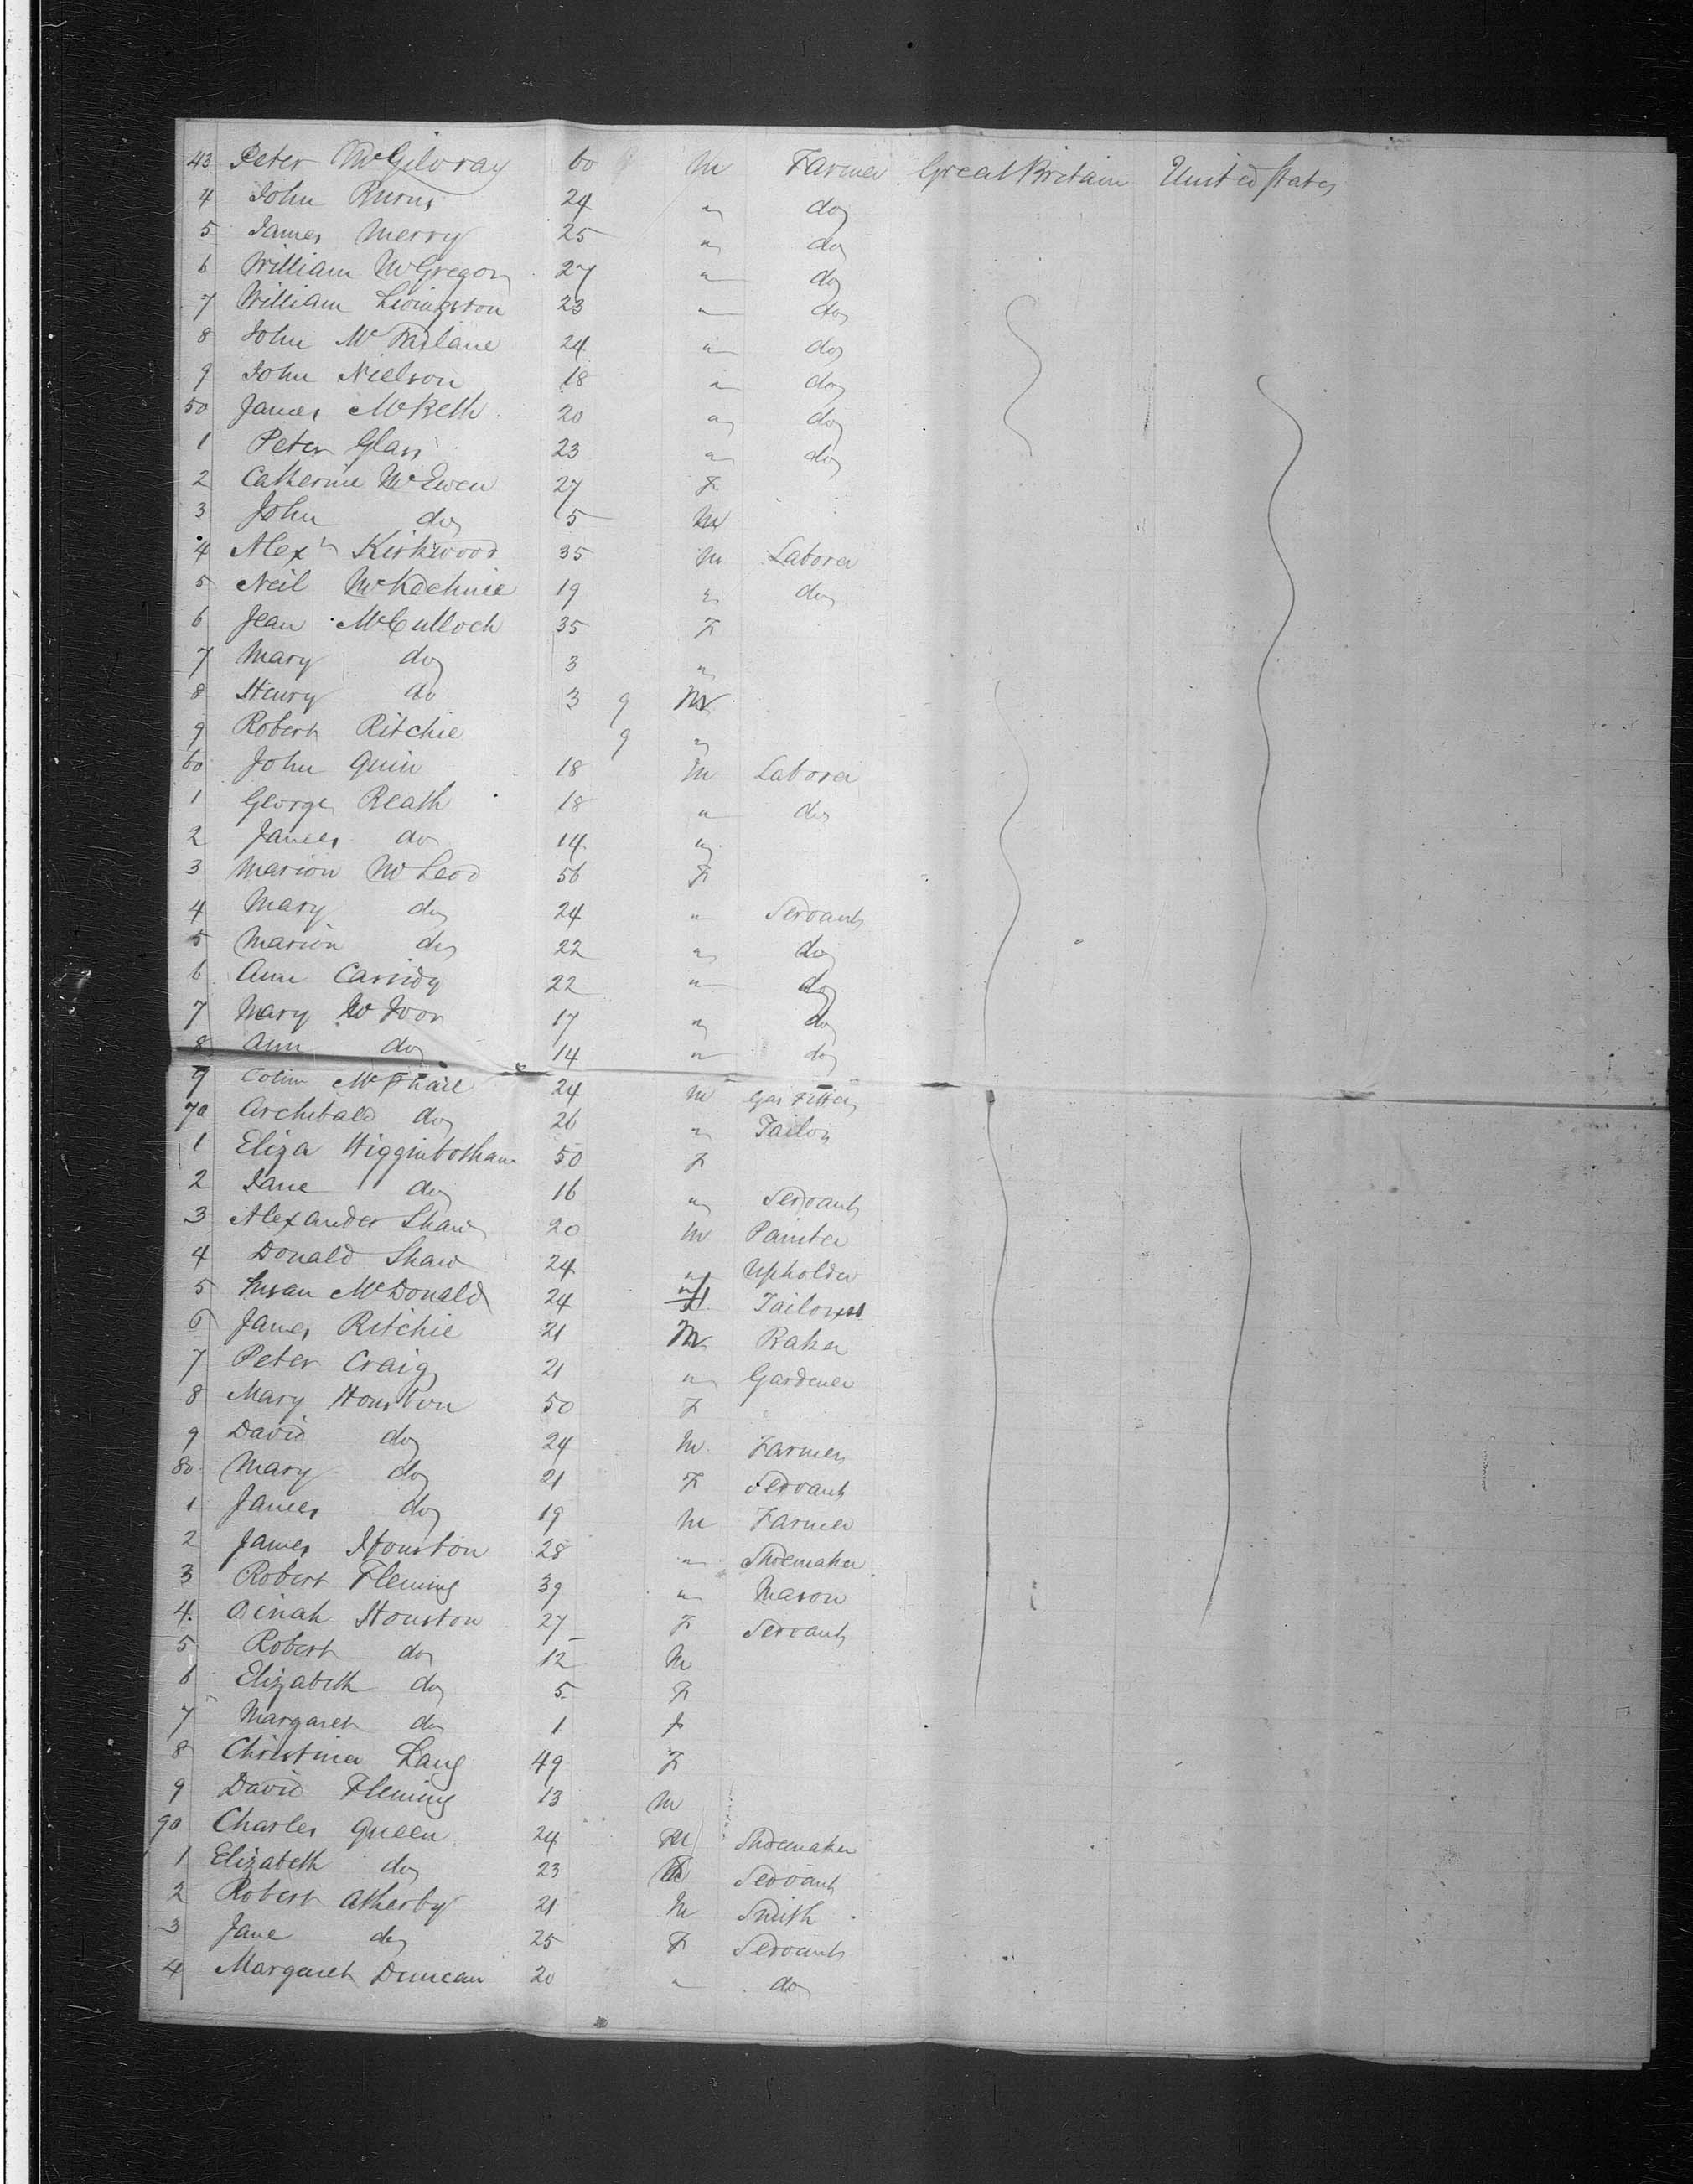 43 Peter McGilvray 60 M Farmer Great Britain United States
4 John Burns 24 " do
5 James Merry 25 " do
6 William McGregor 27 " do
7 William Livingston 23 " do
8 John McFarlane 24 " do
9 John Nielson 18 " do
50 James McBeth 20 " do
1 Peter Glass 23 " do
2 Catherine McEwen 27 F
3 John do 5 M
4 Alexr Kirkwood 35 M Laborer
5 Neil McKechnie 19 " do
6 Jean McCulloch 35 F
7 Mary do 3 "
8 Henry do 3 9 M
9 Robert Ritchie 9 "
60 John Quin 18 M Laborer
1 George Reath 18 " do
2 James do 14 "
3 Marion McLeod 56 F
4 Mary do 24 " Servant
5 Marion do 22 " do
6 Ann Cassidy 22 " do
7 Mary 17 " do
8 Ann do 14 " do
9 Colin McPhail 24 M Gas Fitter
70 Archibald do 26 " Tailor
1 Eliza Higginbotham 50 F
2 Jane do 16 " Servant
3 Alexander Shaw 20 M Painter
4 Donald Shaw 24 " Upholder
5 Susan McDonald 24 F Tailoress
6 James Ritchie 21 M Baker
7 Peter Craig 21 " Gardener
8 Mary Houston 50 F
9 David do 24 M Farmer
80 Mary do 21 F Servant
1 James do 19 M Farmer
2 James Houston 28 " Shoemaker
3 Robert Fleming 39 " Mason
4 Dinah Houston 27 F Servant
5 Robert do 12 M
6 Elizabeth do 5 F
7 Margaret do 1 F
8 Christina Lang 49 F
9 David Fleming 13 M
90 Charles Queen 24 M Shoemaker
1 Elizabeth do 23 F Servant
2 Robert Atherby 21 M Smith
3 Jane do 25 F Servant
4 Margaret Duncan 20 " do